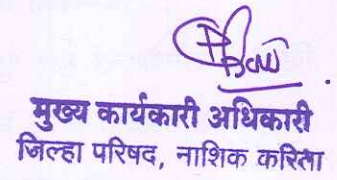 मुख्य कार्यकारी अधिकारी
जिल्हा परिषद, नाशिक करिता